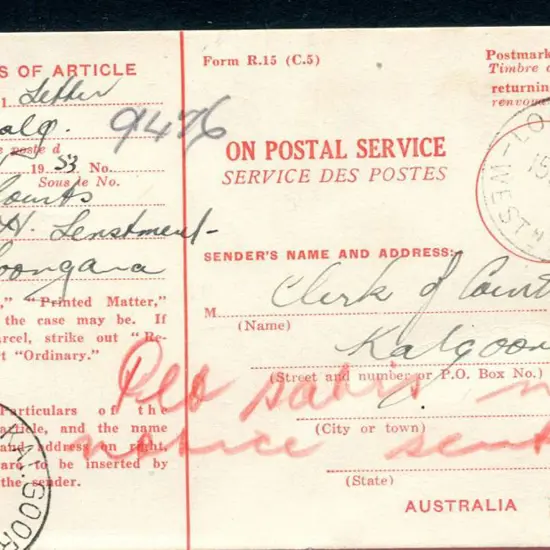 S OF ARTICLE
1. Letter
alg.
9476
e poste d
19 53 No.
Sous le No.
Courts
H. Lenstment-
oongara
," "Printed Matter,"
the case may be. If
arcel, strike out "Re-
rt "Ordinary."
Particulars of the
article, and the name
and address on right,
are to be inserted by
the sender.
Form R.15 (C.5)
Postmark
Timbre d
returning
renvoya
ON POSTAL SERVICE
SERVICE DES POSTES
SENDER'S NAME AND ADDRESS:
M Clerk of Court
(Name)
Kalgoor
(Street and number or P.O. Box No.)
(City or town)
notice sent
(State)
AUSTRALIA
LO
15
WEST
GOOR